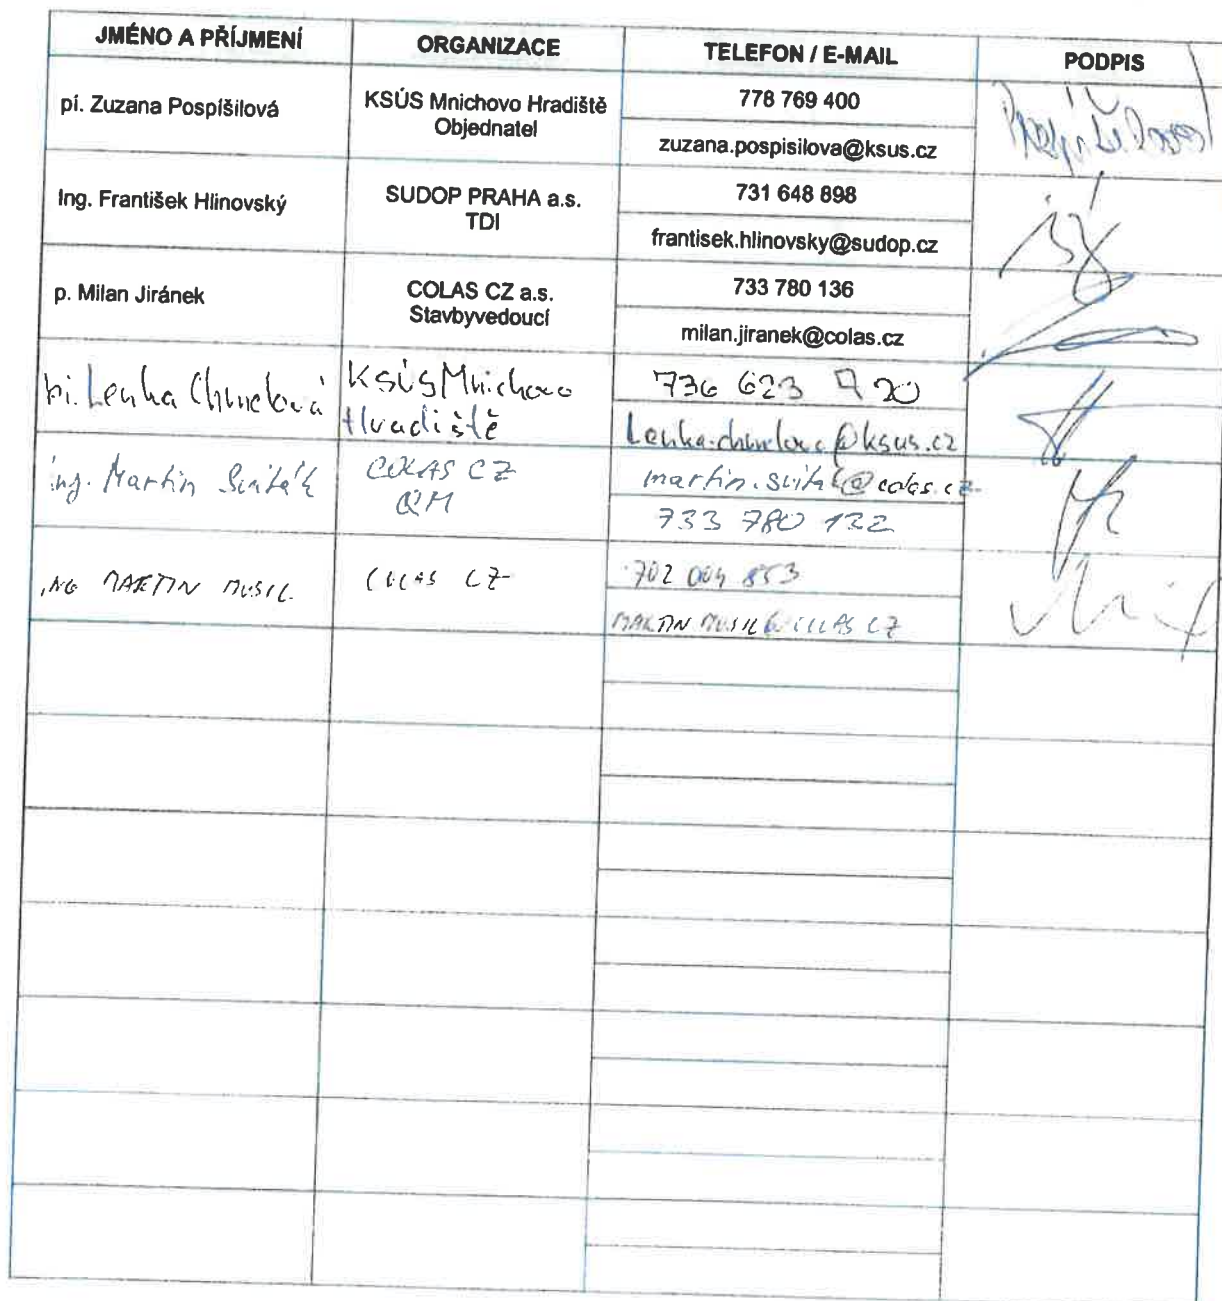 JMÉNO A PŘÍJMENÍ ORGANIZACE TELEFON / E-MAIL PODPIS
pí. Zuzana Pospíšilová KSÚS Mnichovo Hradiště 778 769 400
Objednatel zuzana.pospisilova@ksus.cz
Ing. František Hlinovský SUDOP PRAHA a.s. 731 648 898
TDI frantisek.hlinovsky@sudop.cz
p. Milan Jiránek COLAS CZ a.s. 733 780 136
Stavbyvedoucí milan.jiranek@colas.cz
pí. Lenka Chmelová KSÚS Mnichovo 736 623 720
Hradiště Lenka.chmelova@ksus.cz
ing. Martin Sviták COLAS CZ martin.svitak@colas.cz
QM 733 780 122
ING MARTIN MUSIL COLAS CZ 702 004 853
MARTIN MUSIL@COLAS CZ